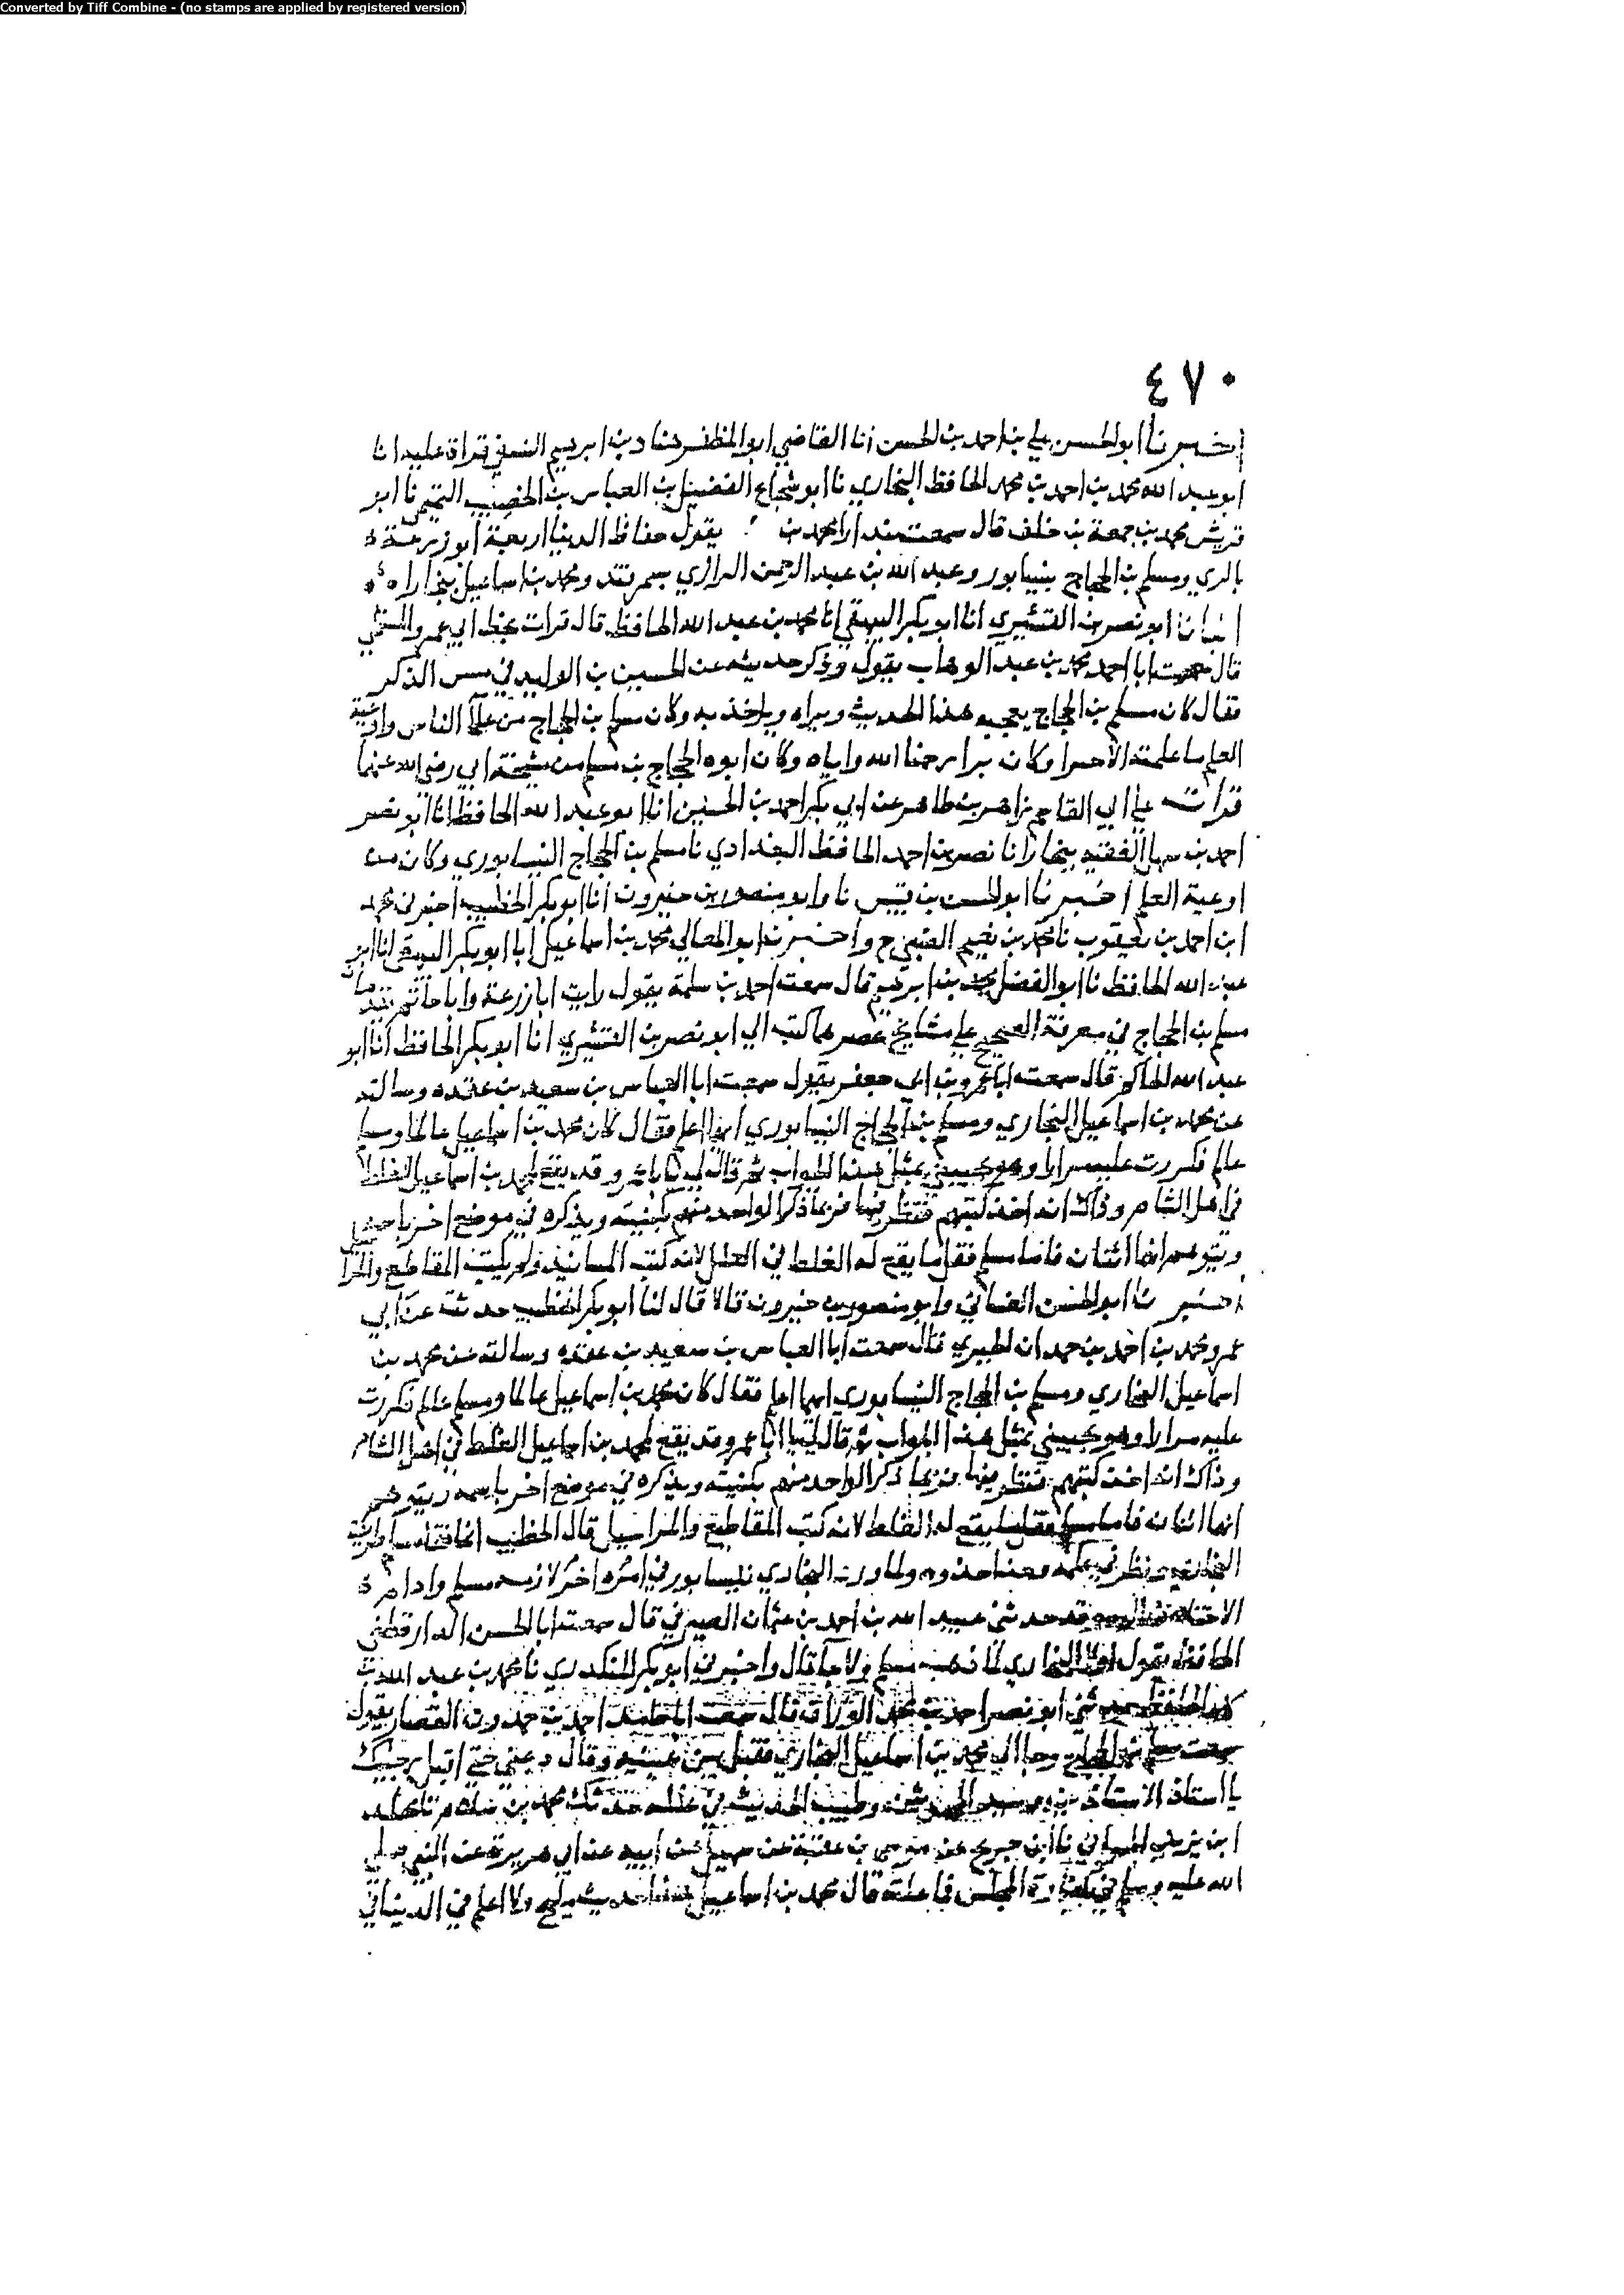 Converted by Tiff Combine - (no stamps are applied by registered version)
٤٧٠
اخبرنا ابو الحسن علي بن احمد بن الحسن انا القاضي ابو المظفر هناد بن ابرهيم النسفي قراة عليه انا
ابو عبد الله محمد بن احمد بن محمد الحافظ البخاري نا ابو شجاع الفضيل بن العباس بن الخصيب التميمي نا ابو
قريش محمد بن جمعة بن خلف قال سمعت بندارا محمد بن يقول حفاظ الدنيا اربعة ابو زرعة
بالري ومسلم بن الحجاج بنيسابور وعبد الله بن عبد الرحمن الرازي بسمرقند ومحمد بن اسماعيل ببخارا
انبانا ابو نصر بن القشيري انا ابو بكر البيهقي انا محمد بن عبد الله الحافظ قال قرات بخط ابي عمرو المستملي
قال سمعت ابا احمد محمد بن عبد الوهاب يقول وذكر حديثه عن الحسين بن الوليد في مس الذكر
فقال كان مسلم بن الحجاج يعجبه هذا الحديث ويراه وياخذ به وكان مسلم بن الحجاج من علما الناس واوعية
العلم ما علمته الا خيرا وكان برا رحمنا الله واياه وكان ابوه الحجاج بن مسلم من مشيخة ابي رضي الله عنهما
قرات علي ابي القاسم زاهر بن طاهر عن ابي بكر احمد بن الحسين انا ابو عبد الله الحافظ انا ابو نصر
احمد بن سهل الفقيه ببخارا نا نصر بن احمد الحافظ البغدادي نا مسلم بن الحجاج النيسابوري وكان من
اوعية العلم اخبرنا ابو الحسن بن قبيس نا وابو منصور بن خيرون انا ابو بكر الخطيب اخبرني محمد
ابن احمد بن يعقوب نا محمد بن نعيم الضبي ح واخبرنا ابو المعالي محمد بن اسماعيل انا ابو بكر البيهقي انا ابو
عبد الله الحافظ نا ابو الفضل محمد بن ابرهيم قال سمعت احمد بن سلمة يقول رايت ابا زرعة وابا حاتم يقدمان
مسلم بن الحجاج في معرفة الصحيح علي مشايخ عصرهما كتب الي ابو نصر بن القشيري انا ابو بكر الحافظ انا ابو
عبد الله الحاكم قال سمعت ابا عمرو بن ابي جعفر يقول سمعت ابا العباس بن سعيد بن عقده وسالته
عن محمد بن اسماعيل البخاري ومسلم بن الحجاج النيسابوري ايهما اعلم فقال كان محمد بن اسماعيل عالما ومسلم
عالم فكررت عليه مرارا وهو يجيبني بمثل هذا الجواب ثم قال لي يا با عمرو قد يقع لمحمد بن اسماعيل الغلط
في اهل الشام وذاك انه اخذ كتبهم فنظر فيها فربما ذكر الواحد منهم بكنيته ويذكره في موضع اخر باسمه
ويتوهم انهما اثنان فاما مسلم فقل ما يقع له الغلط في العلل لانه كتب المسانيد ولم يكتب المقاطيع والمراسيل
اخبرنا ابو الحسن الغساني وابو منصور بن خيرون قالا قال لنا ابو بكر الخطيب حدثت عن ابي
عمرو محمد بن احمد بن حمدان الحيري قال سمعت ابا العباس بن سعيد بن عقده وسالته عن محمد بن
اسماعيل البخاري ومسلم بن الحجاج النيسابوري ايهما اعلم فقال كان محمد بن اسماعيل عالما ومسلم عالم فكررت
عليه مرارا وهو يجيبني بمثل هذا الجواب ثم قال لي يا ابا عمرو قد يقع لمحمد بن اسماعيل الغلط في اهل الشام
وذاك انه اخذ كتبهم فنظر فيها فربما ذكر الواحد منهم بكنيته ويذكره في موضع اخر باسمه ويتوهم
انهما اثنان فاما مسلم فقلما يقع له الغلط لانه كتب المقاطيع والمراسيل قال الخطيب انما قفا مسلم طريق
البخاري ونظر في علمه وحذا حذوه ولما ورد البخاري نيسابور في اخر امره لازمه مسلم وادام
الاختلاف اليه وقد حدثني عبيد الله بن احمد بن عثمان الصيرفي قال سمعت ابا الحسن الدارقطني
الحافظ يقول لولا البخاري لما ذهب مسلم ولا جا قال واخبرني ابو بكر المنكدري نا محمد بن عبد الله بن
محمد الحافظ حدثني ابو نصر احمد بن محمد الوراق قال سمعت ابا حامد احمد بن حمدون القصار يقول
سمعت مسلم بن الحجاج وجا الي محمد بن اسماعيل البخاري فقبل بين عينيه وقال دعني حتي اقبل رجليك
يا استاذ الاستاذين وسيد المحدثين وطبيب الحديث في علله حدثك محمد بن سلام نا مخلد
ابن يزيد الحراني نا ابن جريج عن موسى بن عقبة عن سهيل عن ابيه عن ابي هريرة عن النبي صلي
الله عليه وسلم في كفارة المجلس فما علته قال محمد بن اسماعيل هذا حديث مليح ولا اعلم في الدنيا في